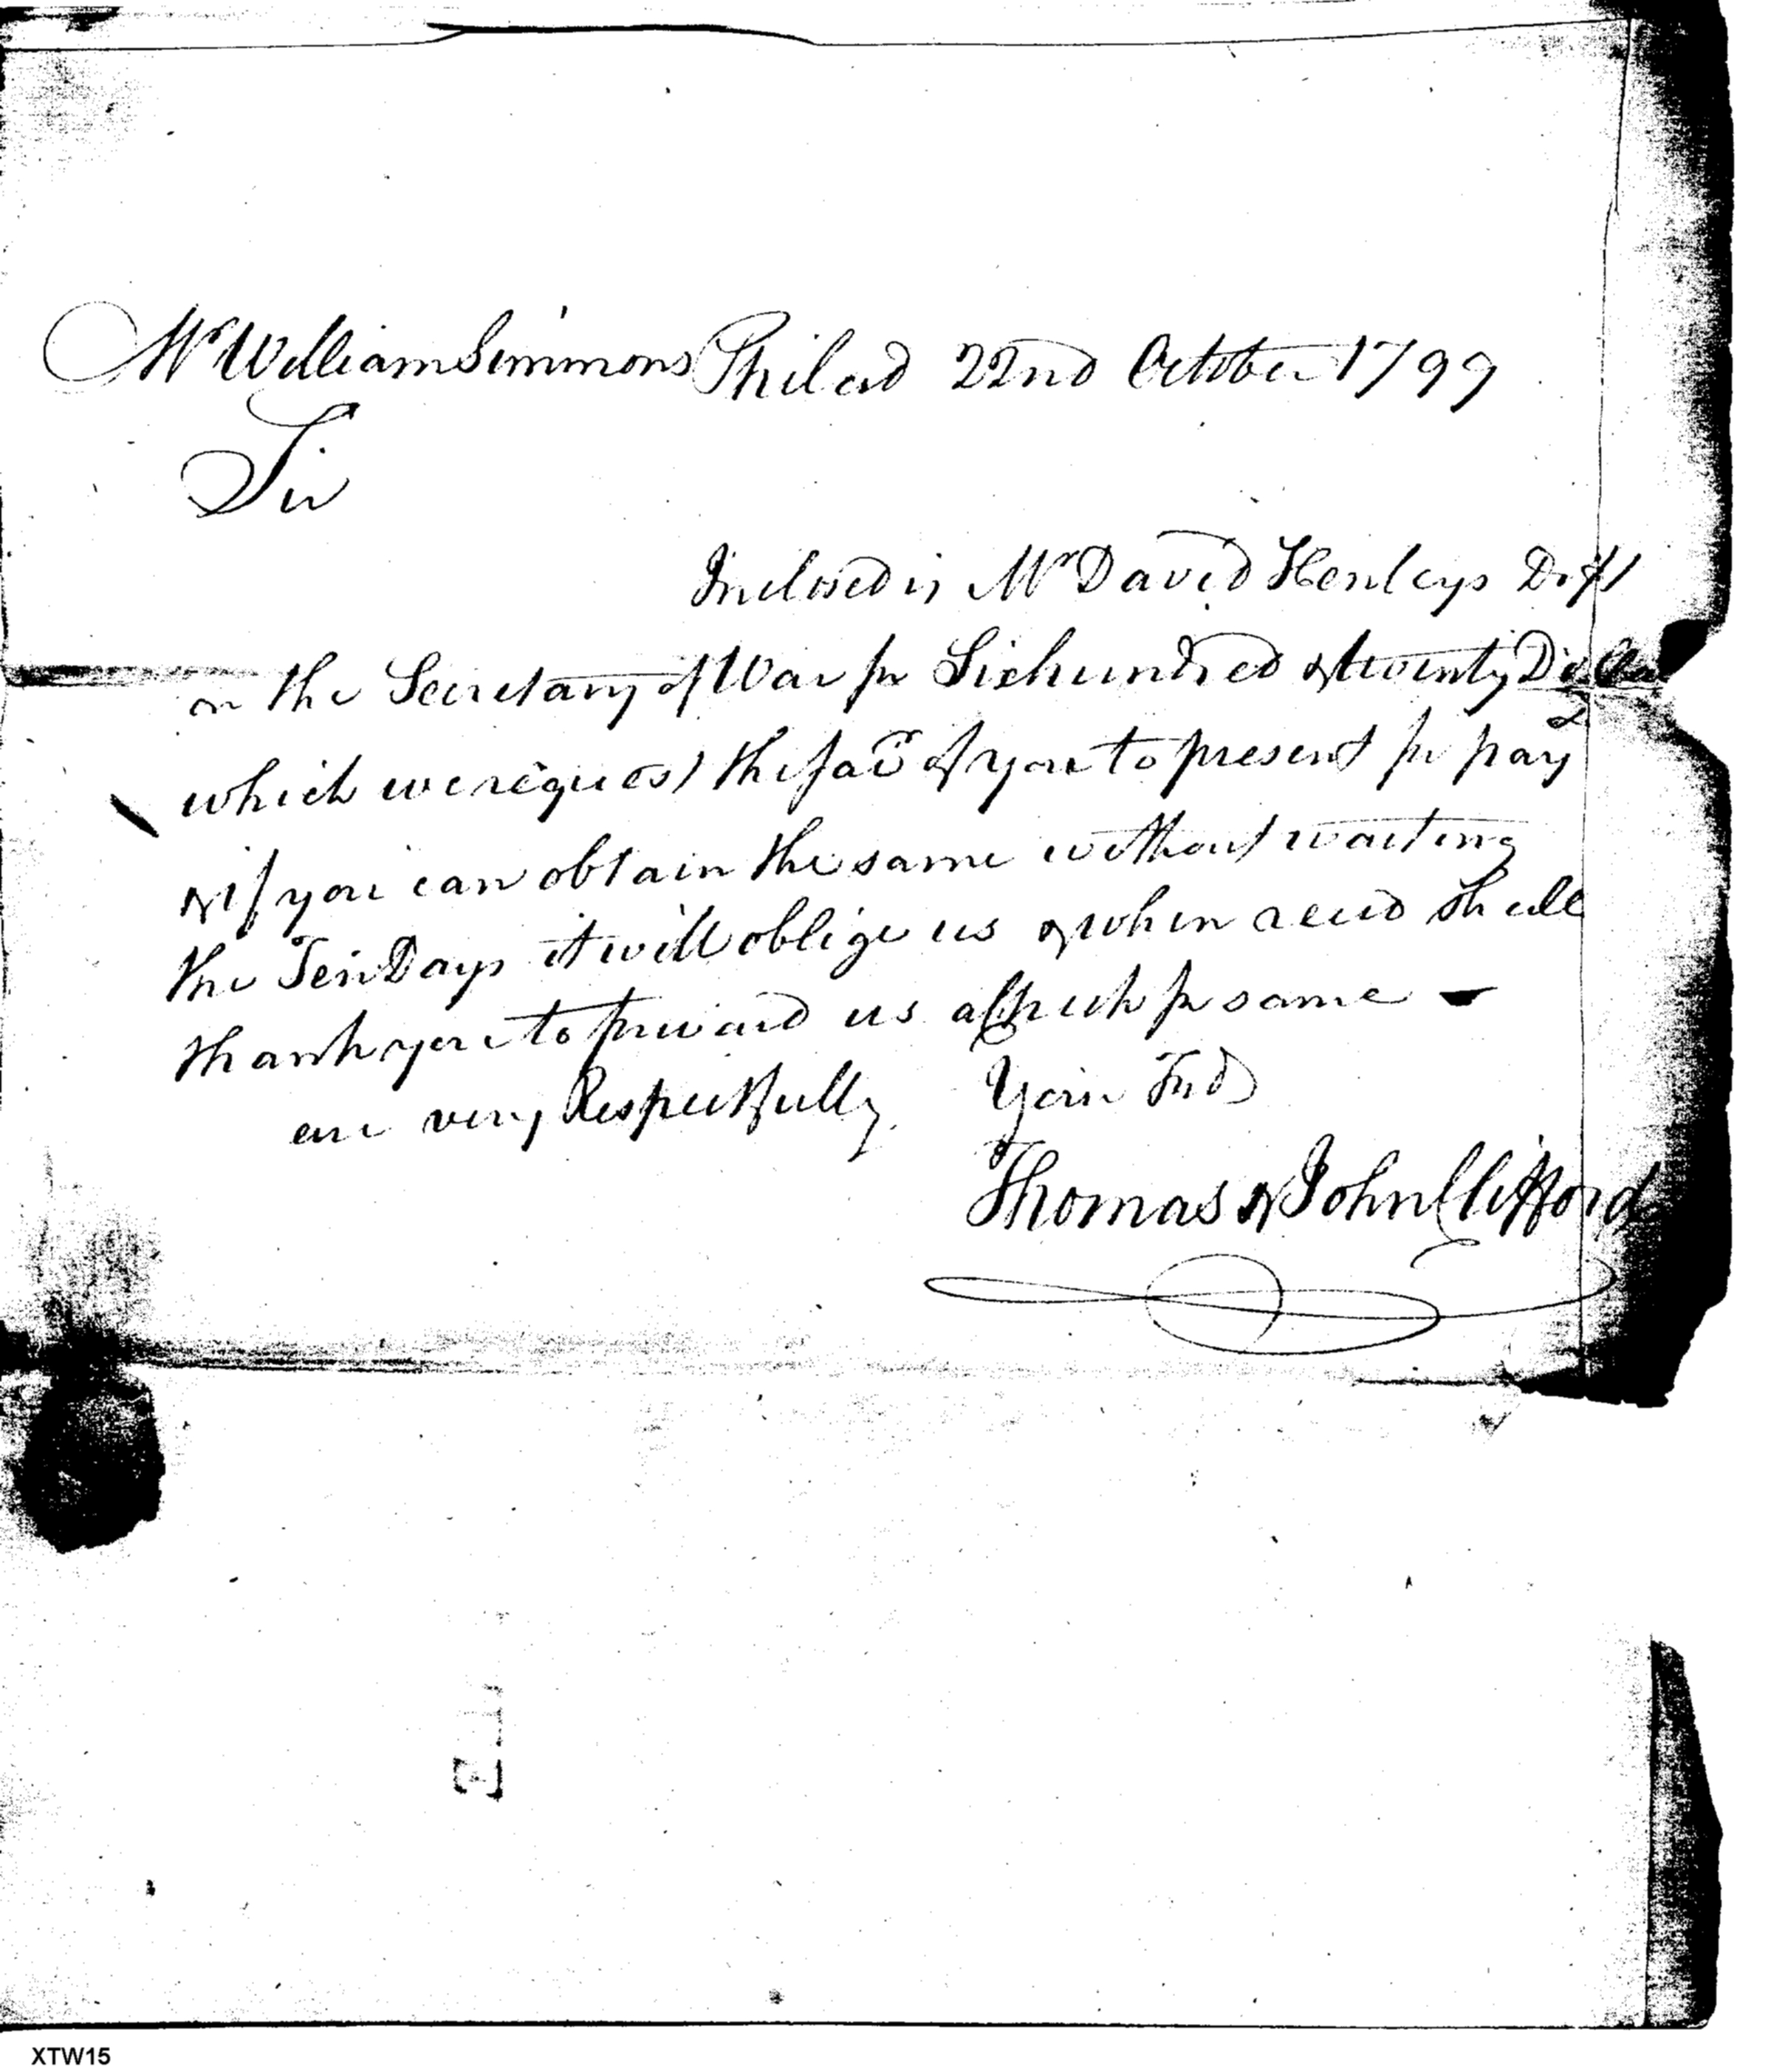 Mr William Simmons Philad 22nd October 1799
Sir
Inclosed is Mr David Henleys Dft
on the Secretary of War for Sixhundred & twenty Dollars
which we request the favr of you to present for pay
& if you can obtain the same without waiting
the Ten Days it will oblige us & when recd shall
thank you to forward us a Check for same
are very Respectfully Your Frds
Thomas & John Clifford
XTW15